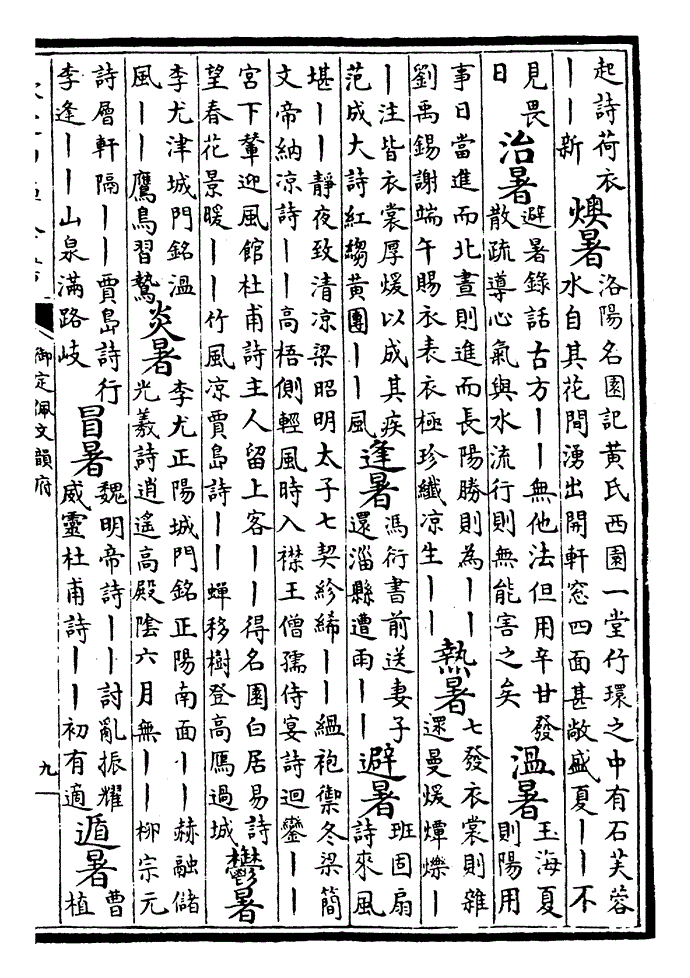 起詩荷衣
——新
燠暑
洛陽名園記黃氏西園一堂竹環之中有石芙蓉
水自其花間湧出開軒窓四面甚敞盛夏——不
見畏
日
治暑
避暑錄話古方——無他法但用辛甘發
散疏導心氣與水流行則無能害之矣
溫暑
玉海夏
則陽用
事日當進而北晝則進而長陽勝則為——
劉禹錫謝端午賜衣表衣極珍纖凉生——
熱暑
七發衣裳則雜
還曼煖燀爍—
—注皆衣裳厚煖以成其疾
范成大詩紅縐黃團——風
逢暑
馮衍書前送妻子
還淄縣遭雨——
避暑
班固扇
詩來風
堪——靜夜致清凉梁昭明太子七契紾絺——緼袍禦冬梁簡
文帝納凉詩——高梧側輕風時入襟王僧孺侍宴詩迴鑾——
宮下輦迎風館杜甫詩主人留上客——得名園白居易詩
望春花景暖——竹風凉賈島詩——蟬移樹登高鴈過城
鬱暑
李尤津城門銘溫
風——鷹鳥習鷙
炎暑
李尤正陽城門銘正陽南面——赫融儲
光羲詩逍遙高殿陰六月無——柳宗元
詩層軒隔——賈島詩行
李逢——山泉滿路岐
冒暑
魏明帝詩——討亂振耀
威靈杜甫詩——初有適
遁暑
曹
植
御定佩文韻府
九